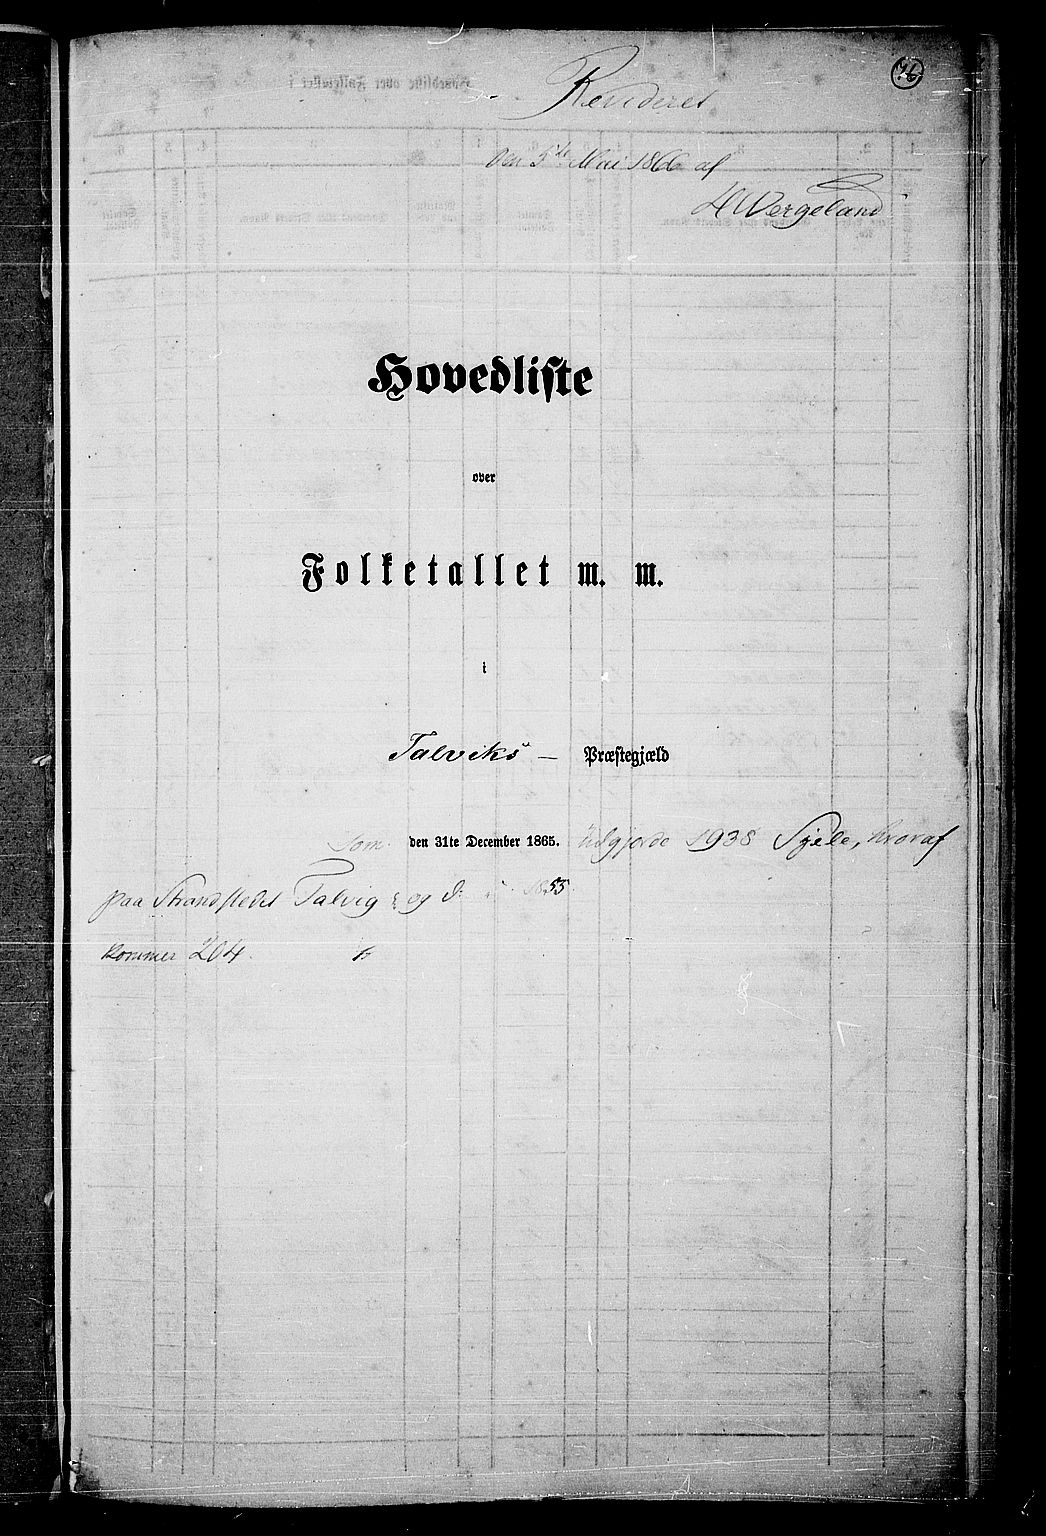 76
Revideret
den 5te Mai 1866 af
HWergeland
Hovedliste
over
Folketallet m. m.
i
Talviks — Præstegjæld
som den 31te December 1865. udgjorde 1938 Sjele, hvoraf
paa Strandstedet Talvig og 1855
kommer 204.